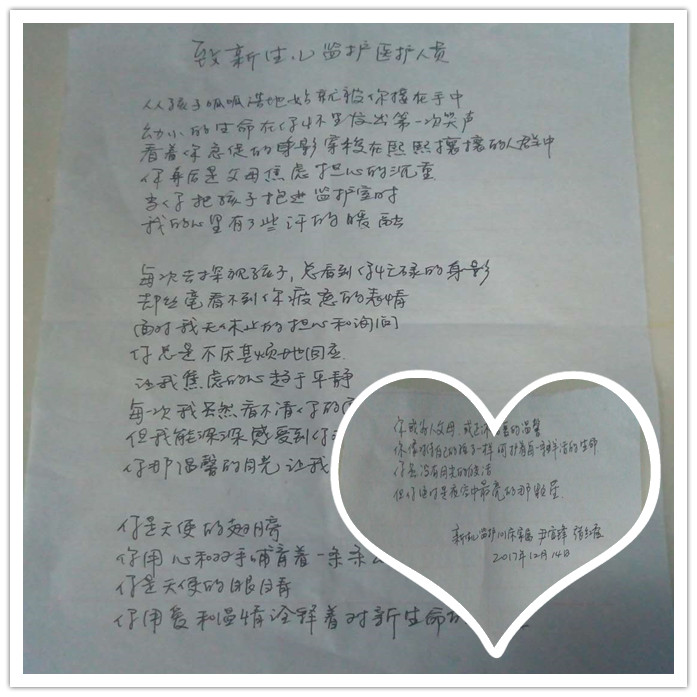 致新生儿监护医护人员
从孩子呱呱落地始就被你接在手中
幼小的生命在你怀里发出第一次哭声
看着你急促的身影穿梭在熙熙攘攘的人群中
你身后是父母焦虑担心的沉重
当你把孩子抱进监护室时
我的心里有了些许的暖融
每次去探视孩子,总看到你忙碌的身影
却丝毫看不到你疲惫的表情
面对我无休止的担心和询问
你总是不厌其烦地回应
让我焦虑的心趋于平静
每次我虽然看不清你的
但我能深深感受到你
你那温馨的目光让我
你是天使的翅膀
你用心和双手哺育着一条条
你是天使的眼睛
你用爱和温情诠释着对新生命
你我当人父母,我
你像对待自己的孩子一样呵护着每一个鲜活的生命
你是没有月光的
但你却是夜空中最亮的那颗星
新儿监护
2017年12月14日